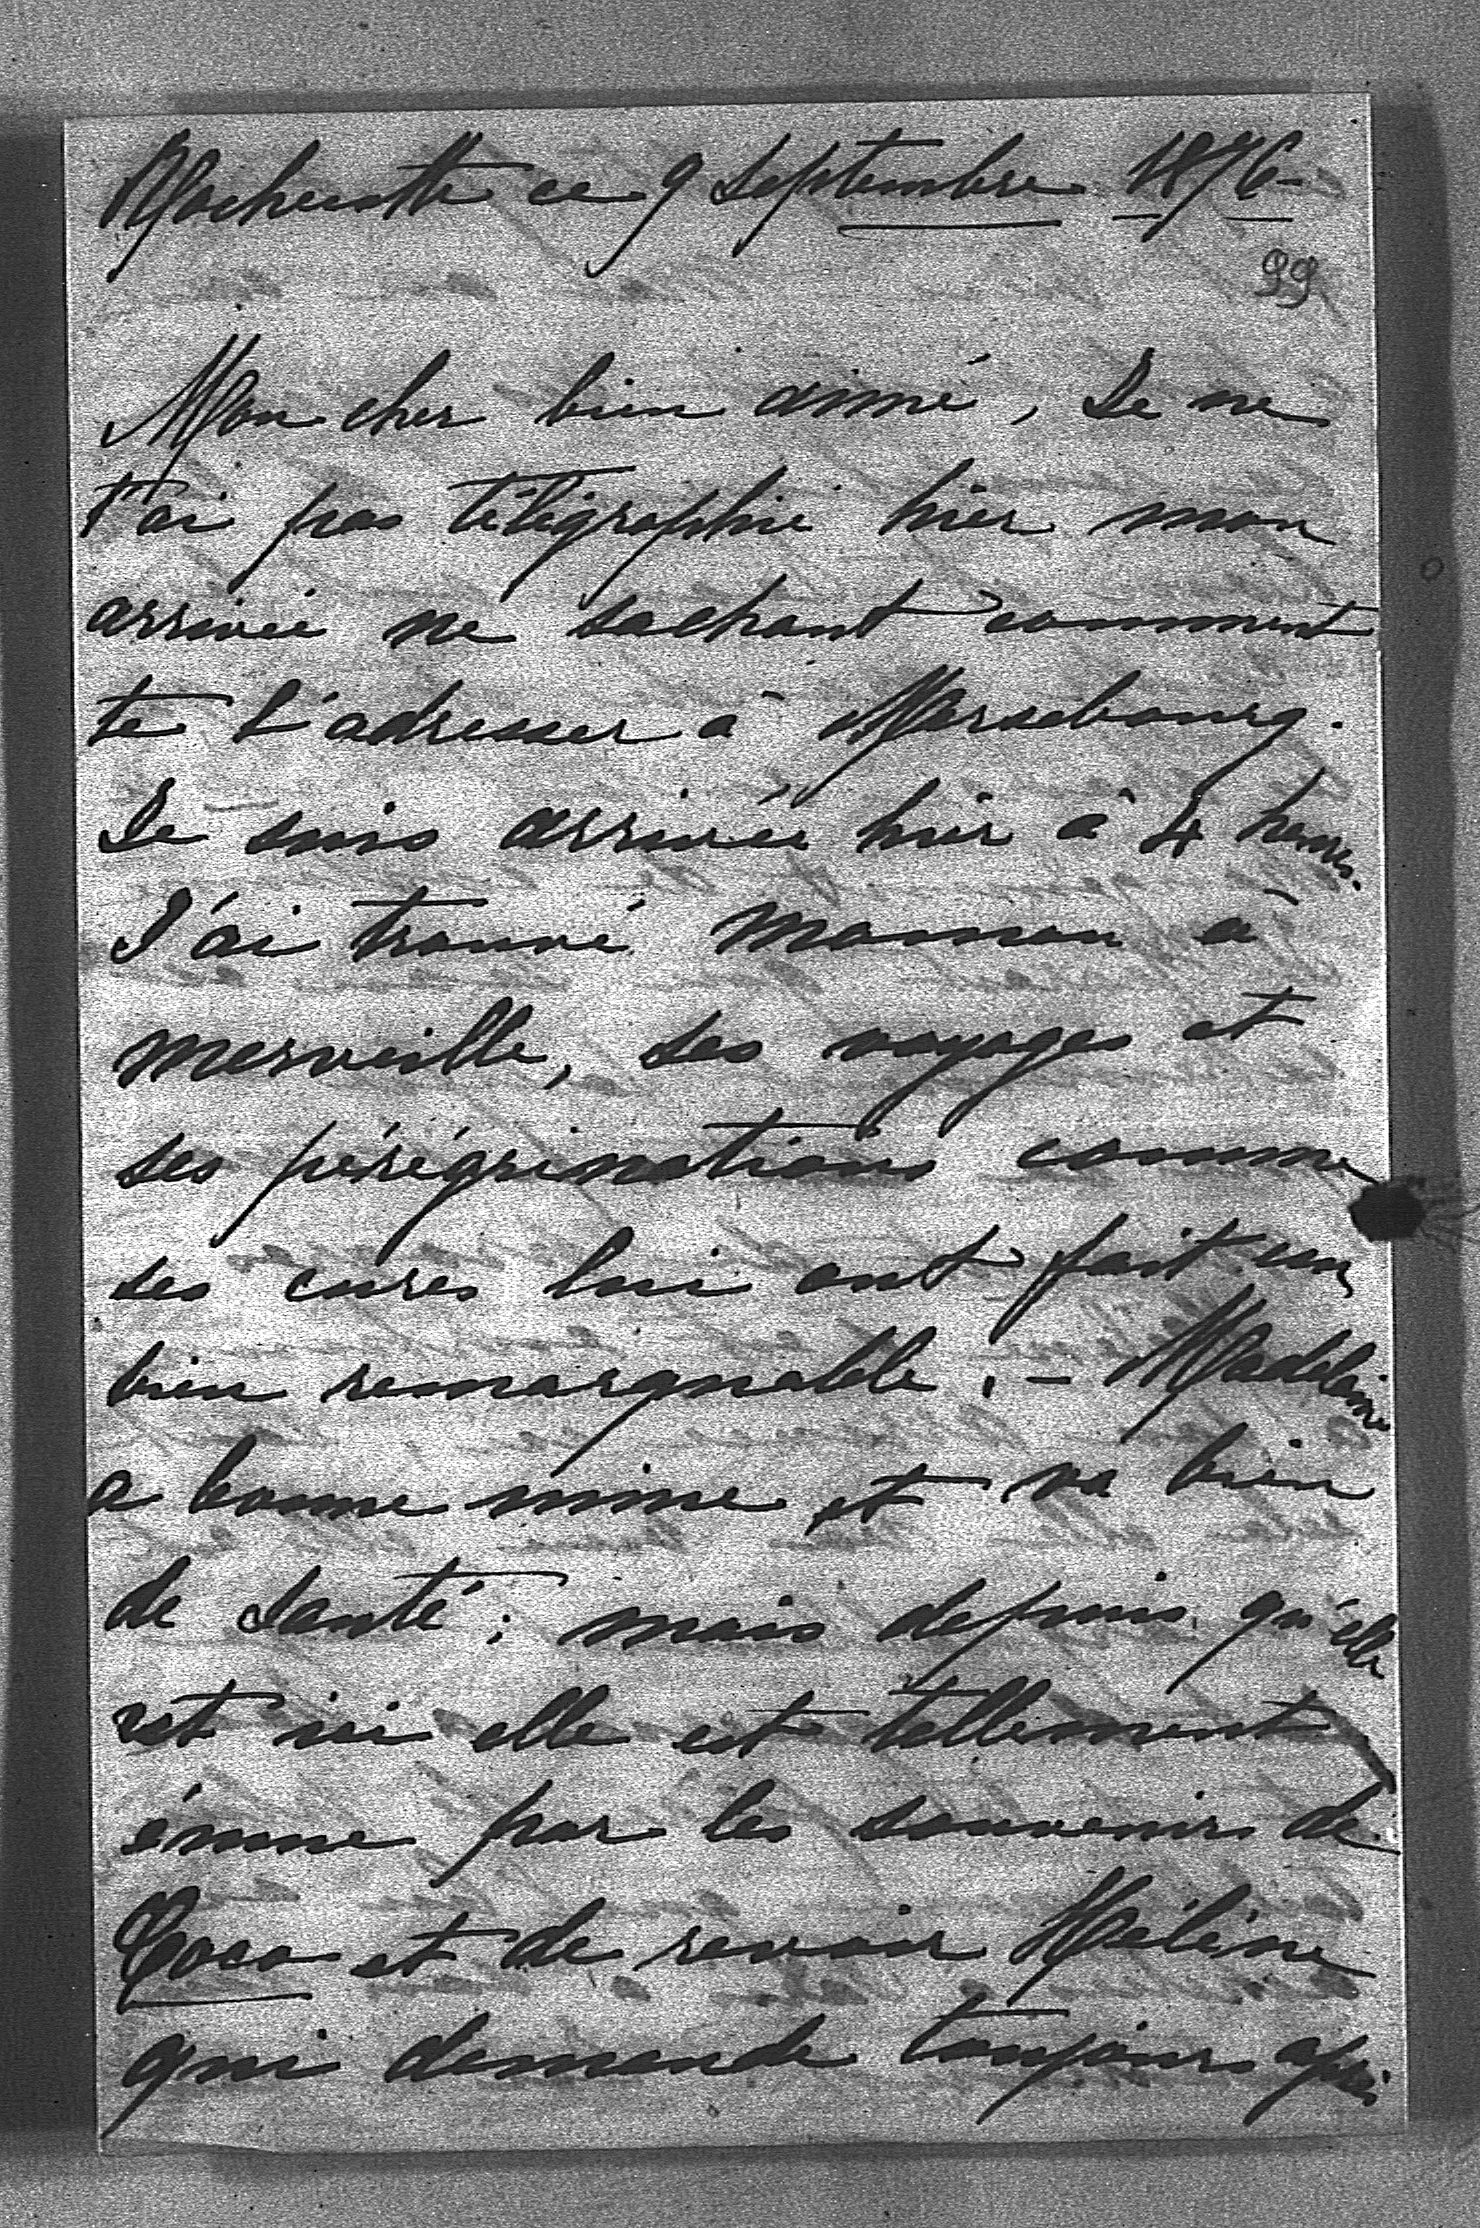 Rochecotte ce 9 Septembre 1876 -
99
Mon cher bien aimé, Je ne
t'ai pas télégraphié hier mon
arrivée ne sachant comment
te l'adresser à Mersebourg.
Je suis arrivée hier à 4 heures.
J'ai trouvé Maman à
merveille, ses voyages et
ses pérégrinations comme
ses cures lui ont fait un
bien remarquable. - Madeleine
a bonne mine et va bien
de Santé; mais depuis qu'elle
est ici elle est tellement
émue par les souvenirs de
Coco et de revoir Hélène
qui demande toujours après